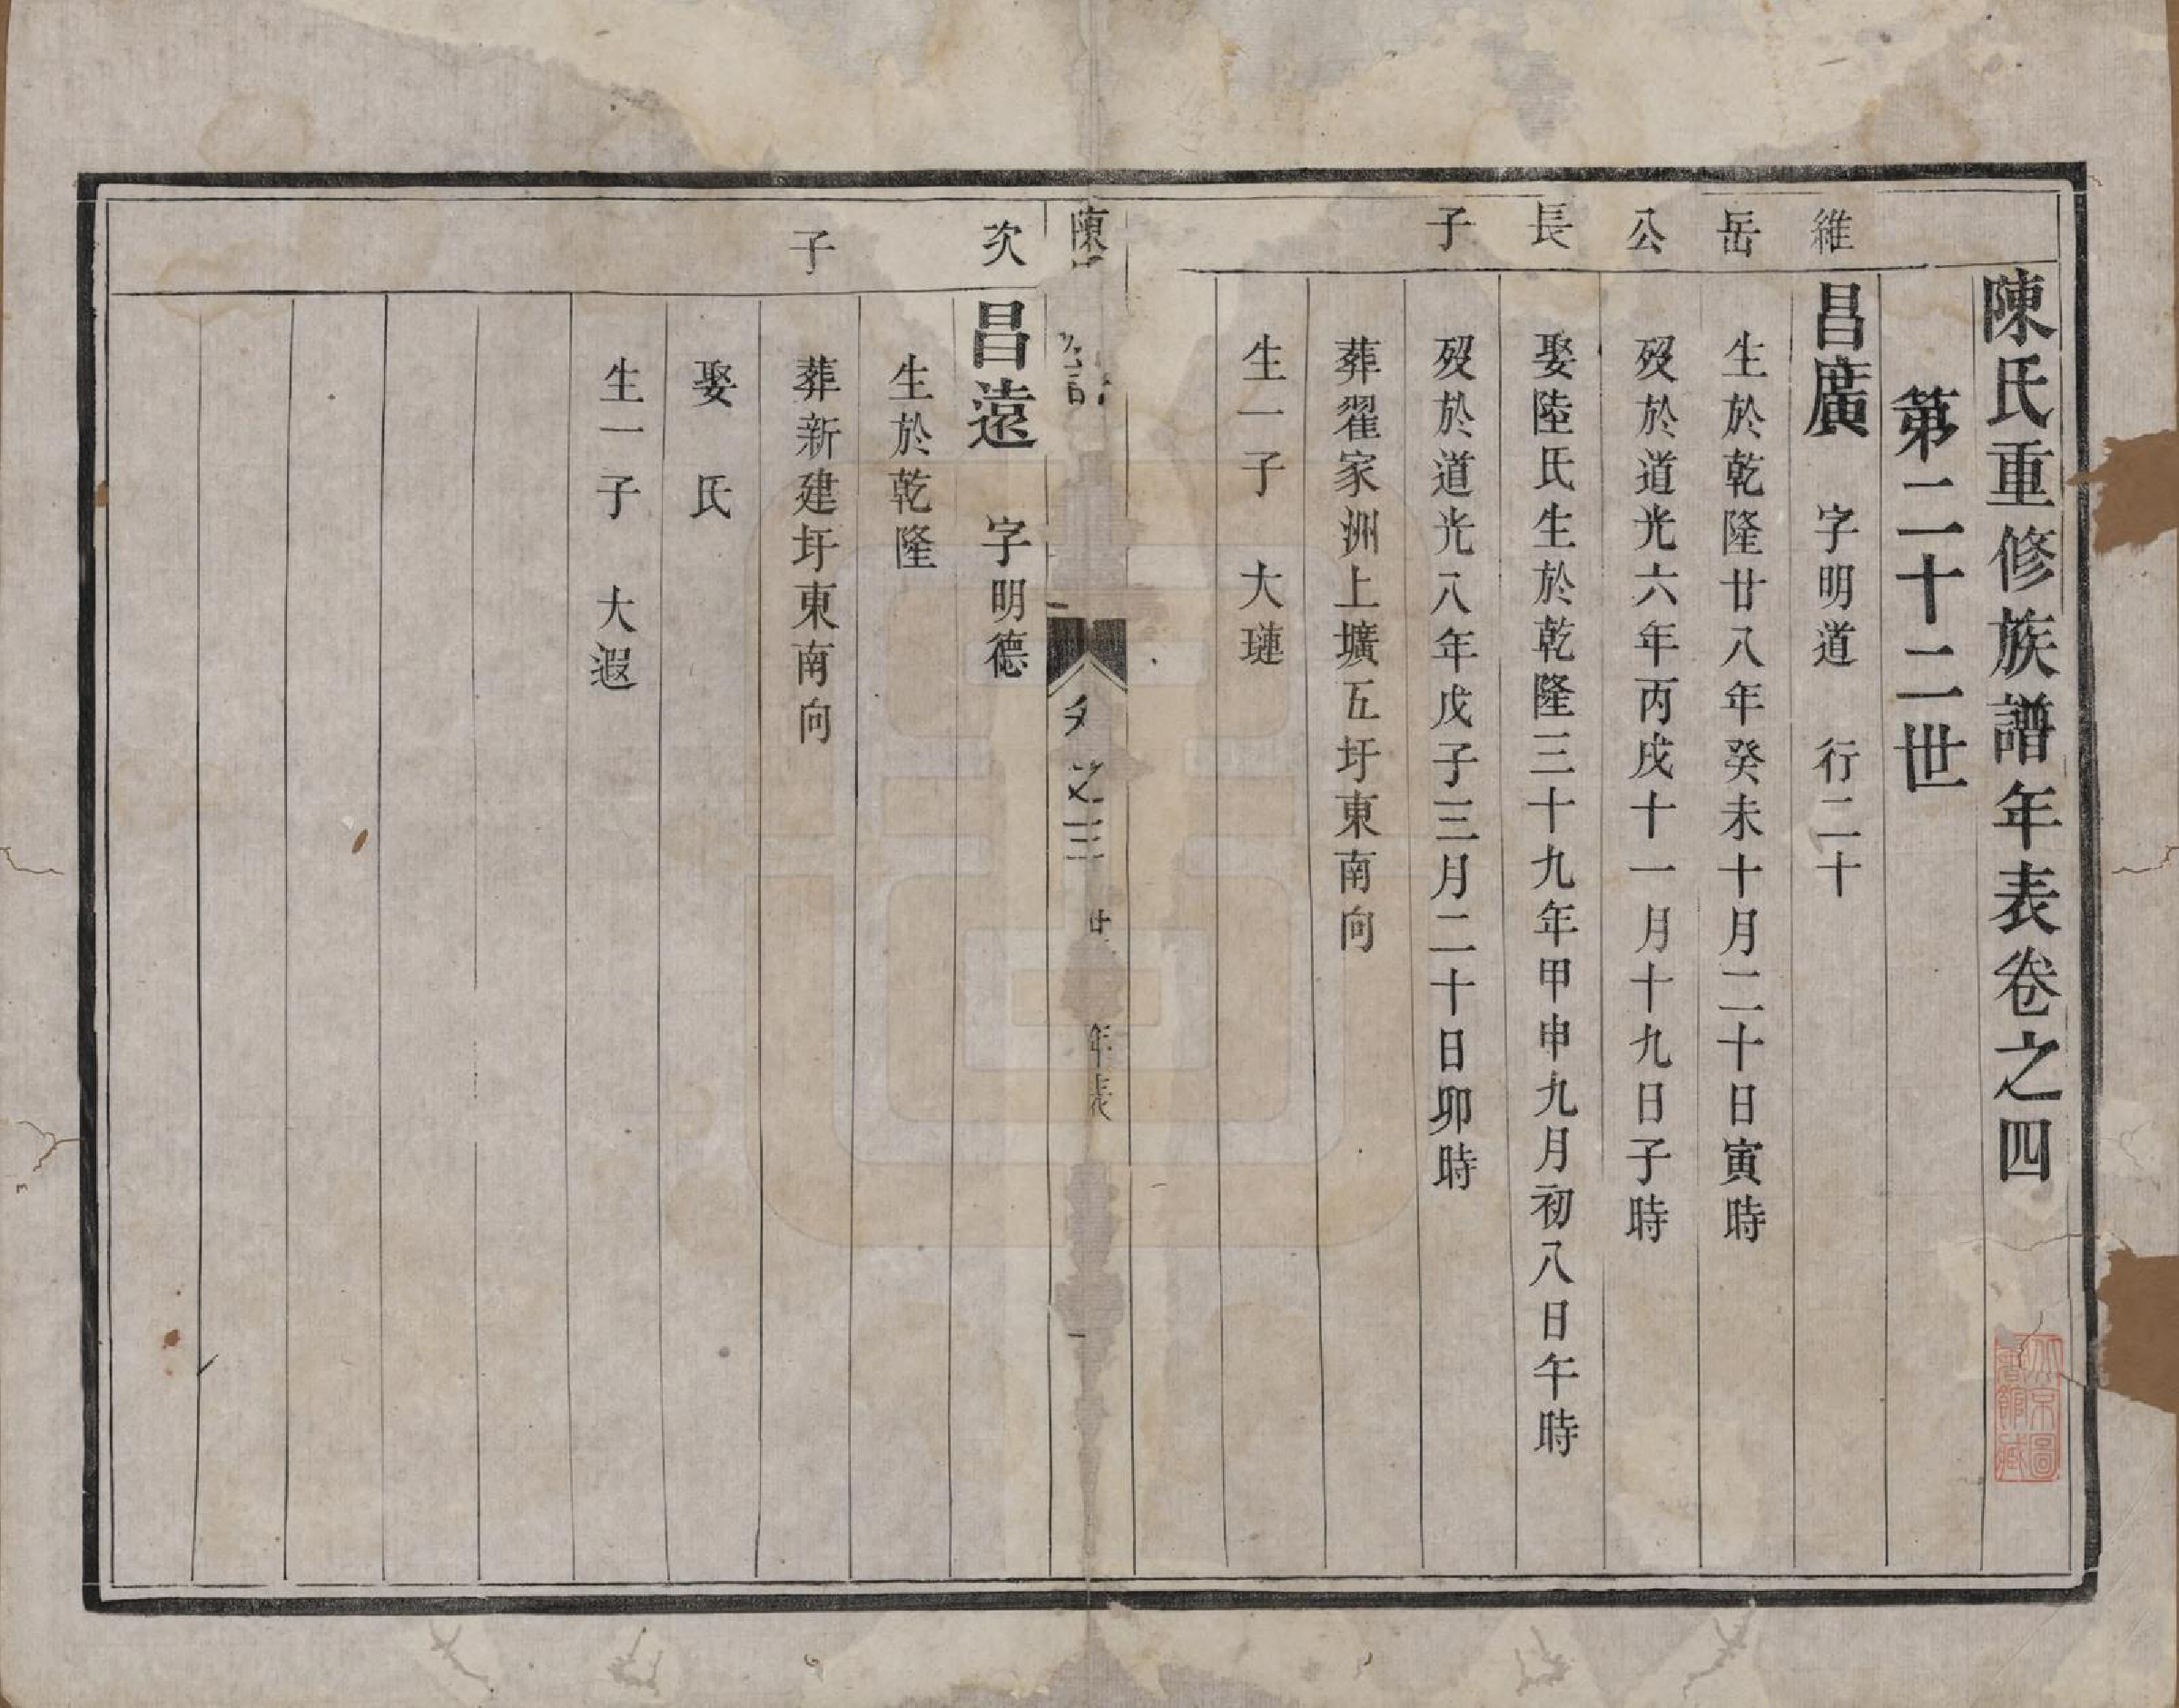 陳氏重修族譜年表卷之四
第二十二世
維岳公長子
昌廣　字明道　行二十
生於乾隆廿八年癸未十月二十日寅時
歿於道光六年丙戌十一月十九日子時
娶陸氏生於乾隆三十九年甲申九月初八日午時
歿於道光八年戊子三月二十日卯時
葬翟家洲上壙五圩東南向
生一子　大璉
陳
之三
廿
年表
次子
昌遠　字明德
生於乾隆
葬新建圩東南向
娶　氏
生一子　大遐
京圖
館藏